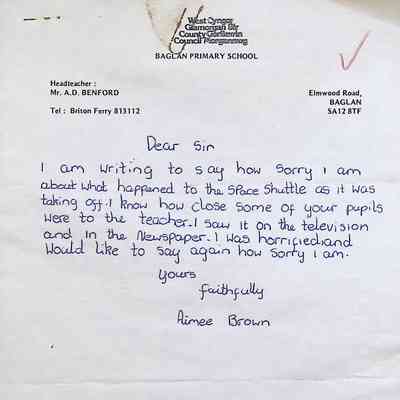 West Cyngor
Glamorgan Sir
County Gorllewin
Council Morgannwg
BAGLAN PRIMARY SCHOOL
Headteacher :
Mr. A.D. BENFORD
Tel : Briton Ferry 813112
Elmwood Road,
BAGLAN
SA12 8TF
Dear Sir
I am writing to say how sorry I am
about what happened to the space shuttle as it was
taking off. I know how close some of your pupils
were to the teacher. I saw it on the television
and in the Newspaper. I was horrified and
Would like to say again how sorry I am.
Yours
faithfully
Aimee Brown